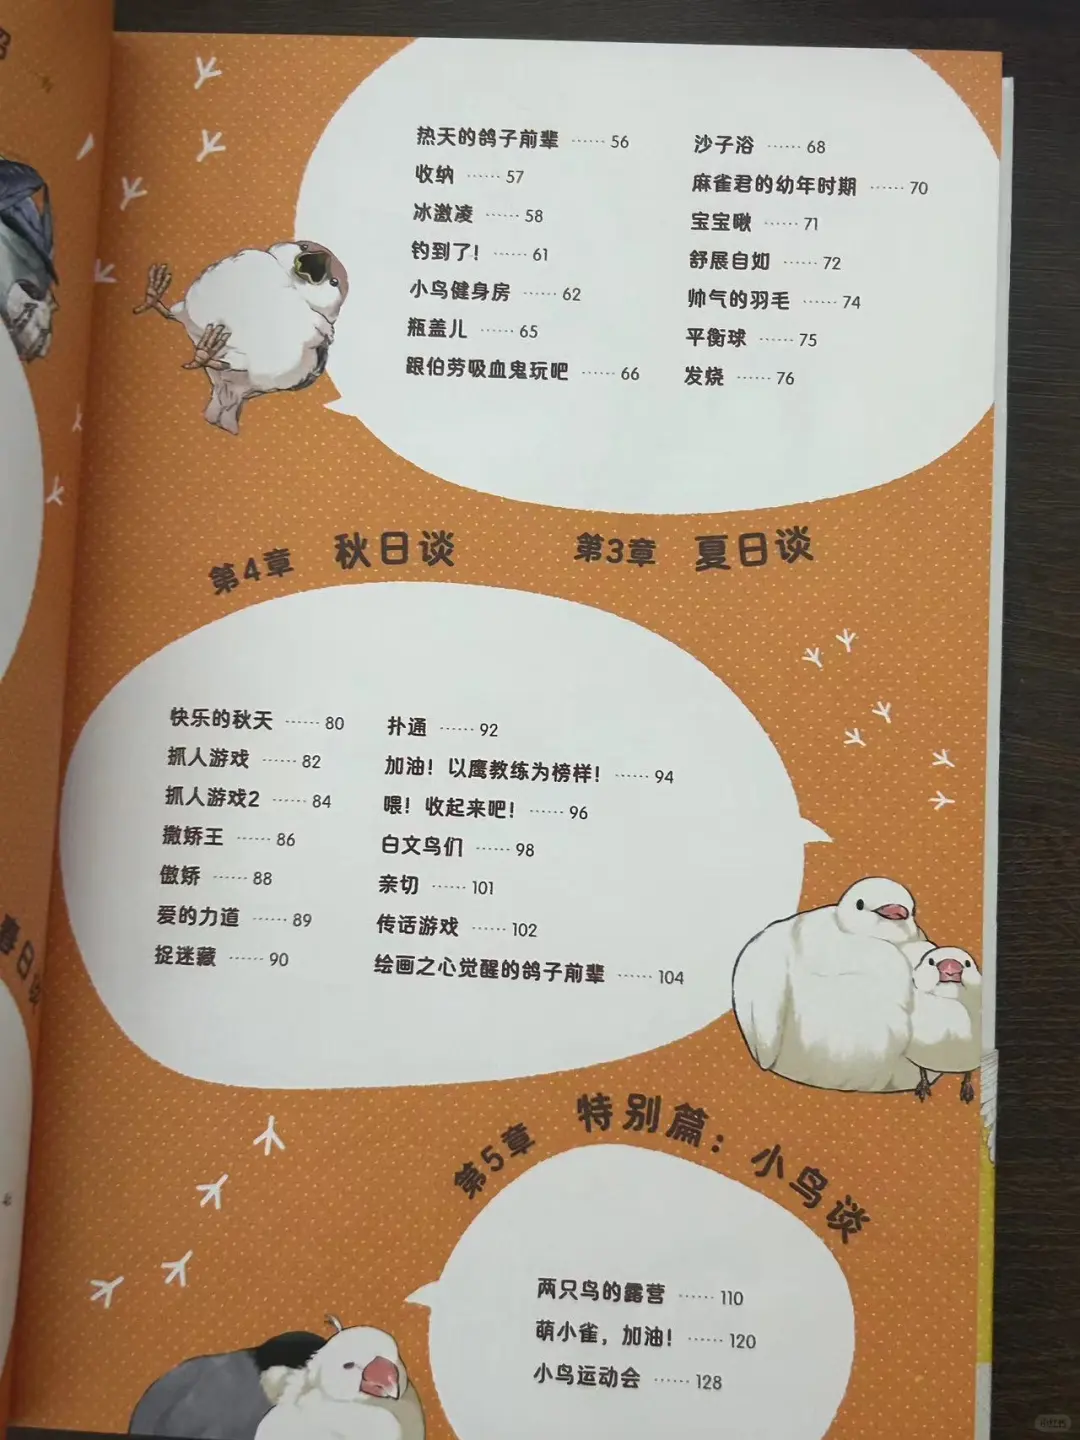 热天的鸽子前辈 …… 56
收纳 …… 57
冰激凌 …… 58
钓到了! …… 61
小鸟健身房 …… 62
瓶盖儿 …… 65
跟伯劳吸血鬼玩吧 …… 66
沙子浴 …… 68
麻雀君的幼年时期 …… 70
宝宝啾 …… 71
舒展自如 …… 72
帅气的羽毛 …… 74
平衡球 …… 75
发烧 …… 76
第3章 夏日谈
第4章 秋日谈
快乐的秋天 …… 80
抓人游戏 …… 82
抓人游戏2 …… 84
撒娇王 …… 86
傲娇 …… 88
爱的力道 …… 89
捉迷藏 …… 90
扑通 …… 92
加油! 以鹰教练为榜样! …… 94
喂! 收起来吧! …… 96
白文鸟们 …… 98
亲切 …… 101
传话游戏 …… 102
绘画之心觉醒的鸽子前辈 …… 104
第5章 特别篇:小鸟谈
两只鸟的露营 …… 110
萌小雀,加油! …… 120
小鸟运动会 …… 128
春日谈